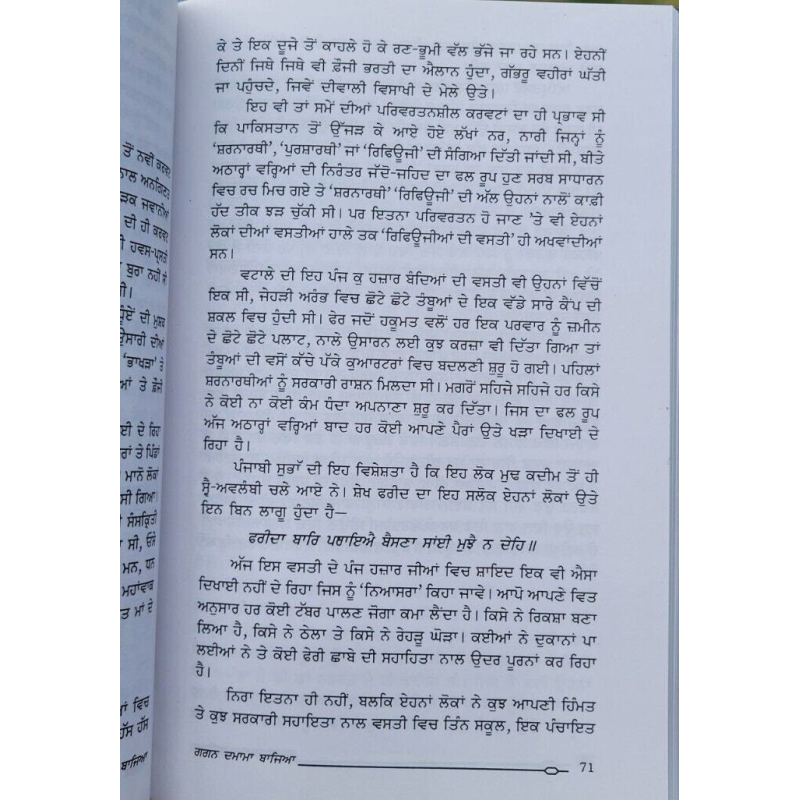 ਤੋਂ ਨਵੀਂ ਕਰਵਟ
ਨਾਲ ਅਨਗਿਣਤ
ੜਕ ਜਵਾਨੀਆਂ
ਦੀ ਹੀ ਕਰਵਟ
ੀ ਹਵਸ-ਪ੍ਰਸਤੀ
ਬੁਰਾ ਨਹੀਂ ਸੀ
ਜੀ।
ਦੀ ਮੁਸ਼ਕ
ਉਸਾਰੀ ਦੀਆਂ
'ਭਾਖੜਾ' ਤੇ
ਆਂ ਤੇ ਫ਼ੌਜੀ
ਈ ਦੇ ਰਿਹਾ
ਰਾਂ ਤੇ ਪਿੰਡਾਂ
ਮਾਨੋ ਲੋਕਾਂ
ਸੀ ਗਿਆ।
ਸੰਸਕ੍ਰਿਤੀ
ਾ ਸੀ, ਓਸੇ
ਮਨ, ਧਨ
ਮਹਾਂਵਾਕ
ਤ ਮਾਂ ਦੇ
ਾਂ ਵਿਚ
ਹੱਸ ਹੱਸ
ਬਾਜਿਆ
ਕੇ ਤੇ ਇਕ ਦੂਜੇ ਤੋਂ ਕਾਹਲੇ ਹੋ ਕੇ ਰਣ-ਭੂਮੀ ਵੱਲ ਭੱਜੇ ਜਾ ਰਹੇ ਸਨ। ਏਹਨੀਂ
ਦਿਨੀਂ ਜਿਥੇ ਜਿਥੇ ਵੀ ਫ਼ੌਜੀ ਭਰਤੀ ਦਾ ਐਲਾਨ ਹੁੰਦਾ, ਗੱਭਰੂ ਵਹੀਰਾਂ ਘੱਤੀ
ਜਾ ਪਹੁੰਚਦੇ, ਜਿਵੇਂ ਦੀਵਾਲੀ ਵਿਸਾਖੀ ਦੇ ਮੇਲੇ ਉਤੇ।
ਇਹ ਵੀ ਤਾਂ ਸਮੇਂ ਦੀਆਂ ਪਰਿਵਰਤਨਸ਼ੀਲ ਕਰਵਟਾਂ ਦਾ ਹੀ ਪ੍ਰਭਾਵ ਸੀ
ਕਿ ਪਾਕਿਸਤਾਨ ਤੋਂ ਉੱਜੜ ਕੇ ਆਏ ਹੋਏ ਲੱਖਾਂ ਨਰ, ਨਾਰੀ ਜਿਨ੍ਹਾਂ ਨੂੰ
'ਸ਼ਰਨਾਰਥੀ', 'ਪੁਰਸ਼ਾਰਥੀ' ਜਾਂ 'ਰਿਫਿਊਜੀ' ਦੀ ਸੰਗਿਆ ਦਿੱਤੀ ਜਾਂਦੀ ਸੀ, ਬੀਤੇ
ਅਠਾਰ੍ਹਾਂ ਵਰ੍ਹਿਆਂ ਦੀ ਨਿਰੰਤਰ ਜੱਦੋ-ਜਹਿਦ ਦਾ ਫਲ ਰੂਪ ਹੁਣ ਸਰਬ ਸਾਧਾਰਨ
ਵਿਚ ਰਚ ਮਿਚ ਗਏ ਤੇ 'ਸ਼ਰਨਾਰਥੀ' 'ਰਿਫਿਊਜੀ' ਦੀ ਅੱਲ ਉਹਨਾਂ ਨਾਲੋਂ ਕਾਫ਼ੀ
ਹੱਦ ਤੀਕ ਝੜ ਚੁੱਕੀ ਸੀ। ਪਰ ਇਤਨਾ ਪਰਿਵਰਤਨ ਹੋ ਜਾਣ 'ਤੇ ਵੀ ਏਹਨਾਂ
ਲੋਕਾਂ ਦੀਆਂ ਵਸਤੀਆਂ ਹਾਲੇ ਤਕ 'ਰਿਫਿਊਜੀਆਂ ਦੀ ਵਸਤੀ' ਹੀ ਅਖਵਾਂਦੀਆਂ
ਸਨ।
ਵਟਾਲੇ ਦੀ ਇਹ ਪੰਜ ਕੁ ਹਜ਼ਾਰ ਬੰਦਿਆਂ ਦੀ ਵਸਤੀ ਵੀ ਉਹਨਾਂ ਵਿੱਚੋਂ
ਇਕ ਸੀ, ਜੇਹੜੀ ਅਰੰਭ ਵਿਚ ਛੋਟੇ ਛੋਟੇ ਤੰਬੂਆਂ ਦੇ ਇਕ ਵੱਡੇ ਸਾਰੇ ਕੈਂਪ ਦੀ
ਸ਼ਕਲ ਵਿਚ ਹੁੰਦੀ ਸੀ। ਫੇਰ ਜਦੋਂ ਹਕੂਮਤ ਵਲੋਂ ਹਰ ਇਕ ਪਰਵਾਰ ਨੂੰ ਜ਼ਮੀਨ
ਦੇ ਛੋਟੇ ਛੋਟੇ ਪਲਾਟ, ਨਾਲੇ ਉਸਾਰਨ ਲਈ ਕੁਝ ਕਰਜ਼ਾ ਵੀ ਦਿੱਤਾ ਗਿਆ ਤਾਂ
ਤੰਬੂਆਂ ਦੀ ਵਸੋਂ ਕੱਚੇ ਪੱਕੇ ਕੁਆਰਟਰਾਂ ਵਿਚ ਬਦਲਣੀ ਸ਼ੁਰੂ ਹੋ ਗਈ। ਪਹਿਲਾਂ
ਸ਼ਰਨਾਰਥੀਆਂ ਨੂੰ ਸਰਕਾਰੀ ਰਾਸ਼ਨ ਮਿਲਦਾ ਸੀ। ਮਗਰੋਂ ਸਹਿਜੇ ਸਹਿਜੇ ਹਰ ਕਿਸੇ
ਨੇ ਕੋਈ ਨਾ ਕੋਈ ਕੰਮ ਧੰਦਾ ਅਪਨਾਣਾ ਸ਼ੁਰੂ ਕਰ ਦਿੱਤਾ। ਜਿਸ ਦਾ ਫਲ ਰੂਪ
ਅੱਜ ਅਠਾਰ੍ਹਾਂ ਵਰ੍ਹਿਆਂ ਬਾਦ ਹਰ ਕੋਈ ਆਪਣੇ ਪੈਰਾਂ ਉਤੇ ਖੜਾ ਦਿਖਾਈ ਦੇ
ਰਿਹਾ ਹੈ।
ਪੰਜਾਬੀ ਸੁਭਾੱ ਦੀ ਇਹ ਵਿਸ਼ੇਸ਼ਤਾ ਹੈ ਕਿ ਇਹ ਲੋਕ ਮੁਢ ਕਦੀਮ ਤੋਂ ਹੀ
ਸ੍ਵੈ-ਅਵਲੰਬੀ ਚਲੇ ਆਏ ਨੇ। ਸ਼ੇਖ ਫਰੀਦ ਦਾ ਇਹ ਸਲੋਕ ਏਹਨਾਂ ਲੋਕਾਂ ਉਤੇ
ਇਨ ਬਿਨ ਲਾਗੂ ਹੁੰਦਾ ਹੈ—
ਫਰੀਦਾ ਬਾਰਿ ਪਥਾਇਐ ਬੈਸਣਾ ਸਾਂਈ ਮੁਝੈ ਨ ਦੇਹਿ॥
ਅੱਜ ਇਸ ਵਸਤੀ ਦੇ ਪੰਜ ਹਜ਼ਾਰ ਜੀਆਂ ਵਿਚ ਸ਼ਾਇਦ ਇਕ ਵੀ ਐਸਾ
ਦਿਖਾਈ ਨਹੀਂ ਦੇ ਰਿਹਾ ਜਿਸ ਨੂੰ 'ਨਿਆਸਰਾ' ਕਿਹਾ ਜਾਵੇ। ਆਪੋ ਆਪਣੇ ਵਿਤ
ਅਨੁਸਾਰ ਹਰ ਕੋਈ ਟੱਬਰ ਪਾਲਣ ਜੋਗਾ ਕਮਾ ਲੈਂਦਾ ਹੈ। ਕਿਸੇ ਨੇ ਰਿਕਸ਼ਾ ਬਣਾ
ਲਿਆ ਹੈ, ਕਿਸੇ ਨੇ ਠੇਲਾ ਤੇ ਕਿਸੇ ਨੇ ਰੇਹੜੂ ਘੋੜਾ। ਕਈਆਂ ਨੇ ਦੁਕਾਨਾਂ ਪਾ
ਲਈਆਂ ਨੇ ਤੇ ਕੋਈ ਫੇਰੀ ਛਾਬੇ ਦੀ ਸਹਾਹਿਤਾ ਨਾਲ ਉਦਰ ਪੂਰਨਾਂ ਕਰ ਰਿਹਾ
ਹੈ।
ਨਿਰਾ ਇਤਨਾ ਹੀ ਨਹੀਂ, ਬਲਕਿ ਏਹਨਾਂ ਲੋਕਾਂ ਨੇ ਕੁਝ ਆਪਣੀ ਹਿੰਮਤ
ਤੇ ਕੁਝ ਸਰਕਾਰੀ ਸਹਾਇਤਾ ਨਾਲ ਵਸਤੀ ਵਿਚ ਤਿੰਨ ਸਕੂਲ, ਇਕ ਪੰਚਾਇਤ
ਗਗਨ ਦਮਾਮਾ ਬਾਜਿਆ 71